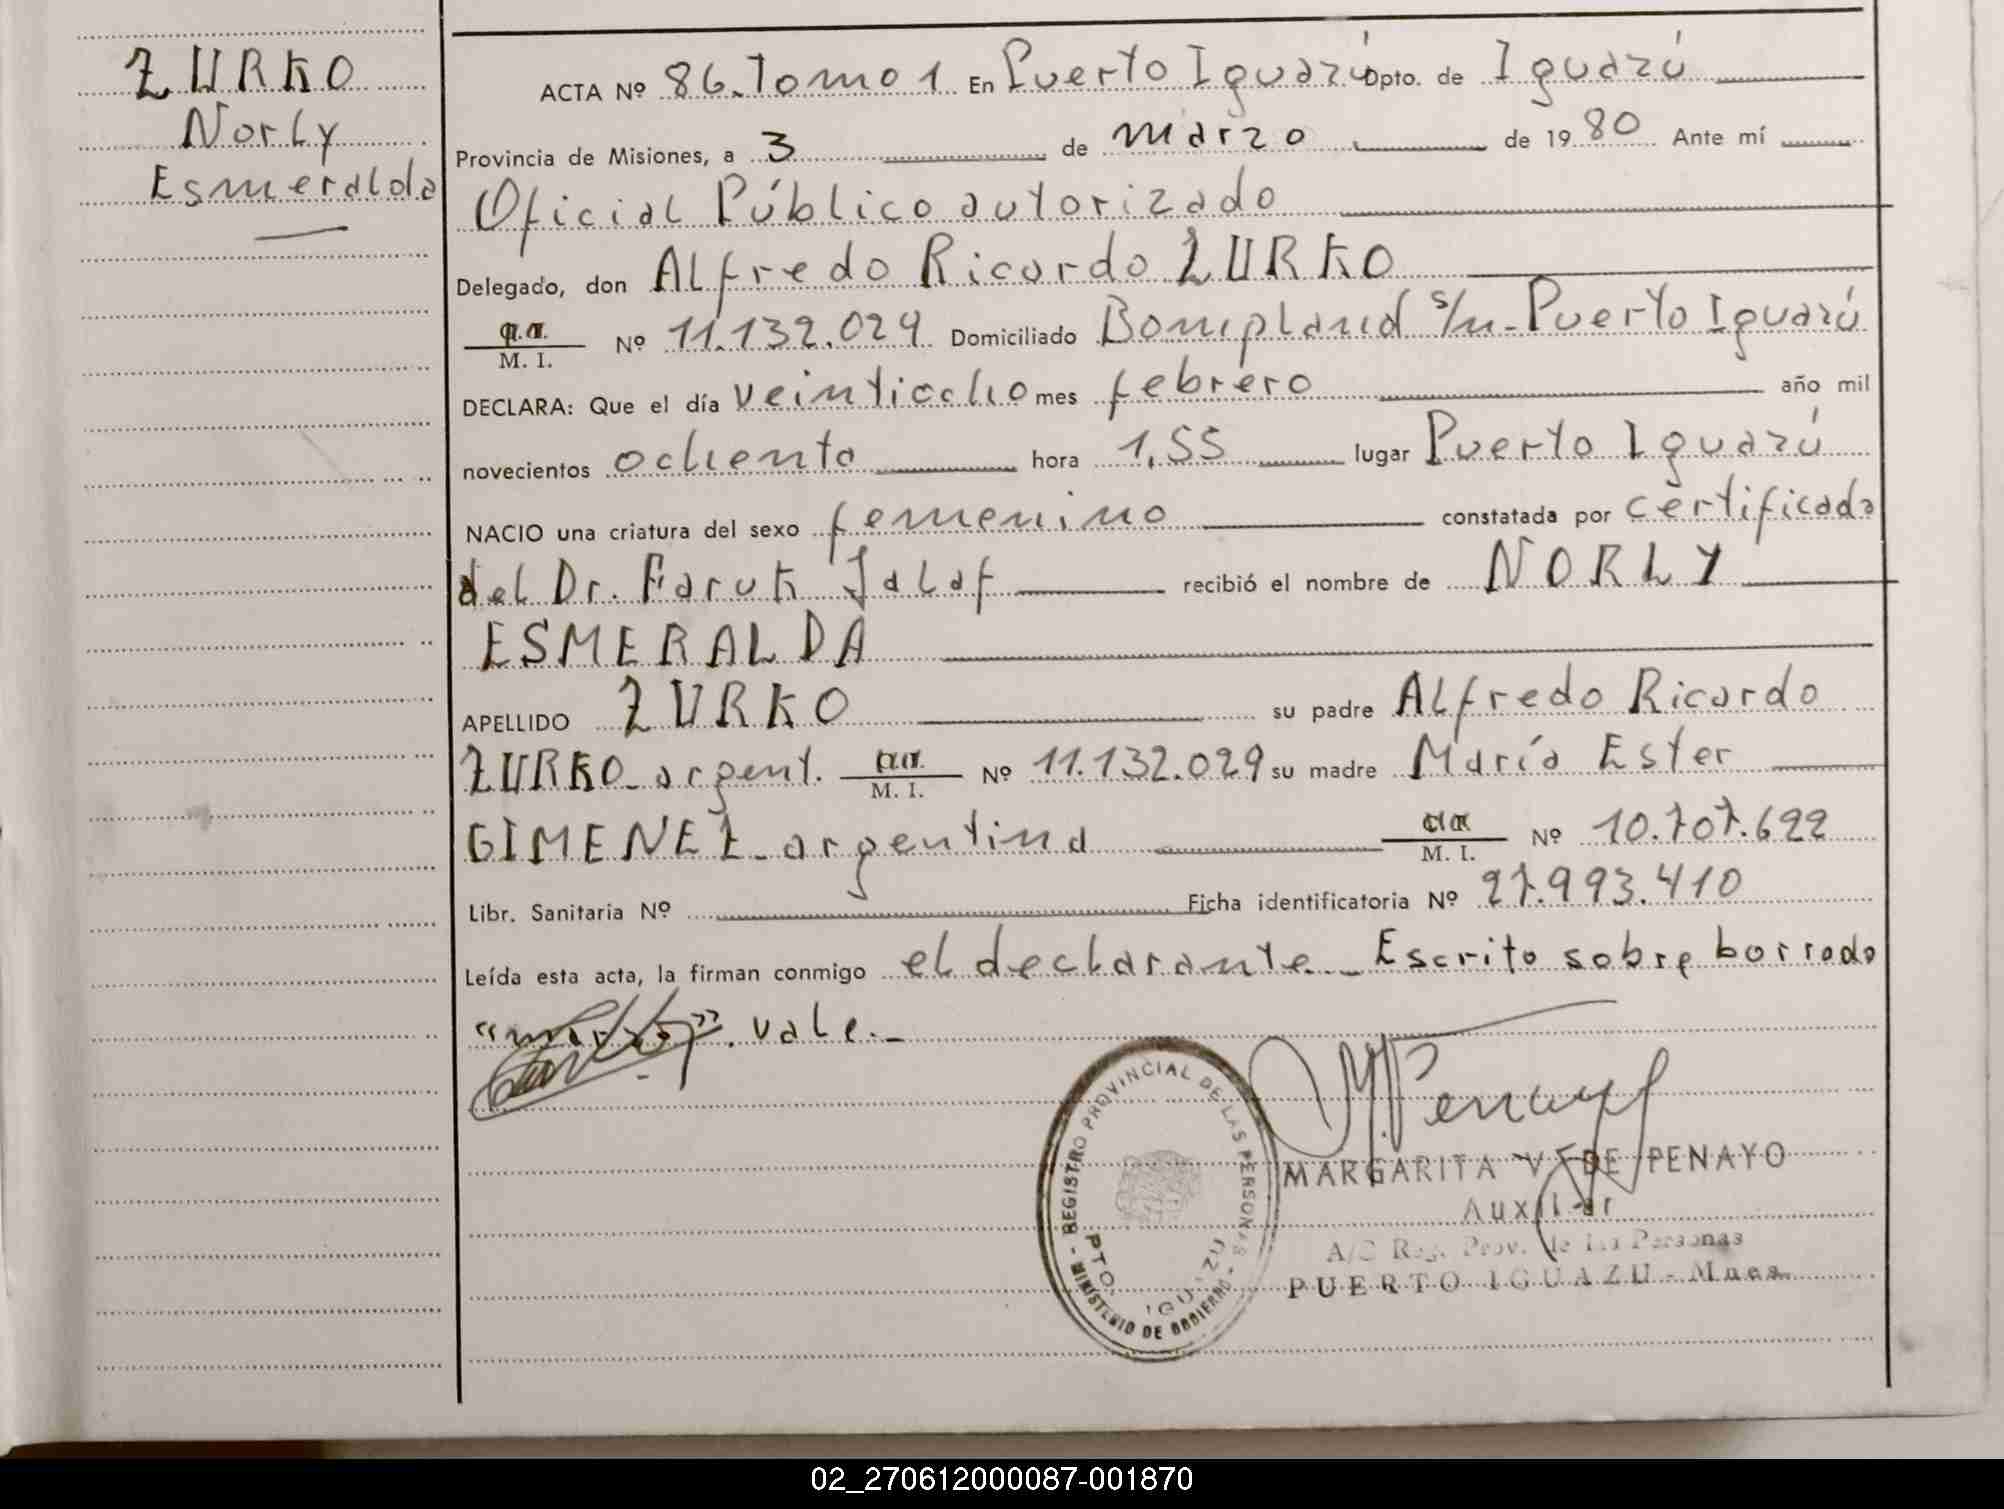 ZURKO
Norly
Esmeralda
ACTA Nº 86. Tomo 1 En Puerto Iguazú Dpto. de Iguazú
Provincia de Misiones, a 3 de marzo de 1980 Ante mí
Oficial Público autorizado
Delegado, don Alfredo Ricardo ZURKO
M. I. Nº 11.132.029 Domiciliado Bompland s/n - Puerto Iguazú
DECLARA: Que el día veintiocho mes febrero año mil
novecientos ochenta hora 1,55 lugar Puerto Iguazú
NACIO una criatura del sexo femenino constatada por certificado
del Dr. Faruk Jalaf recibió el nombre de NORLY
ESMERALDA
APELLIDO ZURKO su padre Alfredo Ricardo
ZURKO - argent. M. I. Nº 11.132.029 su madre María Ester
GIMENEZ - argentina M. I. Nº 10.707.622
Libr. Sanitaria Nº Ficha identificatoria Nº 27.993.410
Leída esta acta, la firman conmigo el declarante. - Escrito sobre borrado
"marzo". vale. -
M Penayo
REGISTRO PROVINCIAL DE LAS PERSONAS - MINISTERIO DE GOBIERNO -
PTO. IGUAZU
MARGARITA V. DE PENAYO
Auxiliar
A/C Reg. Prov. de las Personas
PUERTO IGUAZU - Mnes.
02_270612000087-001870